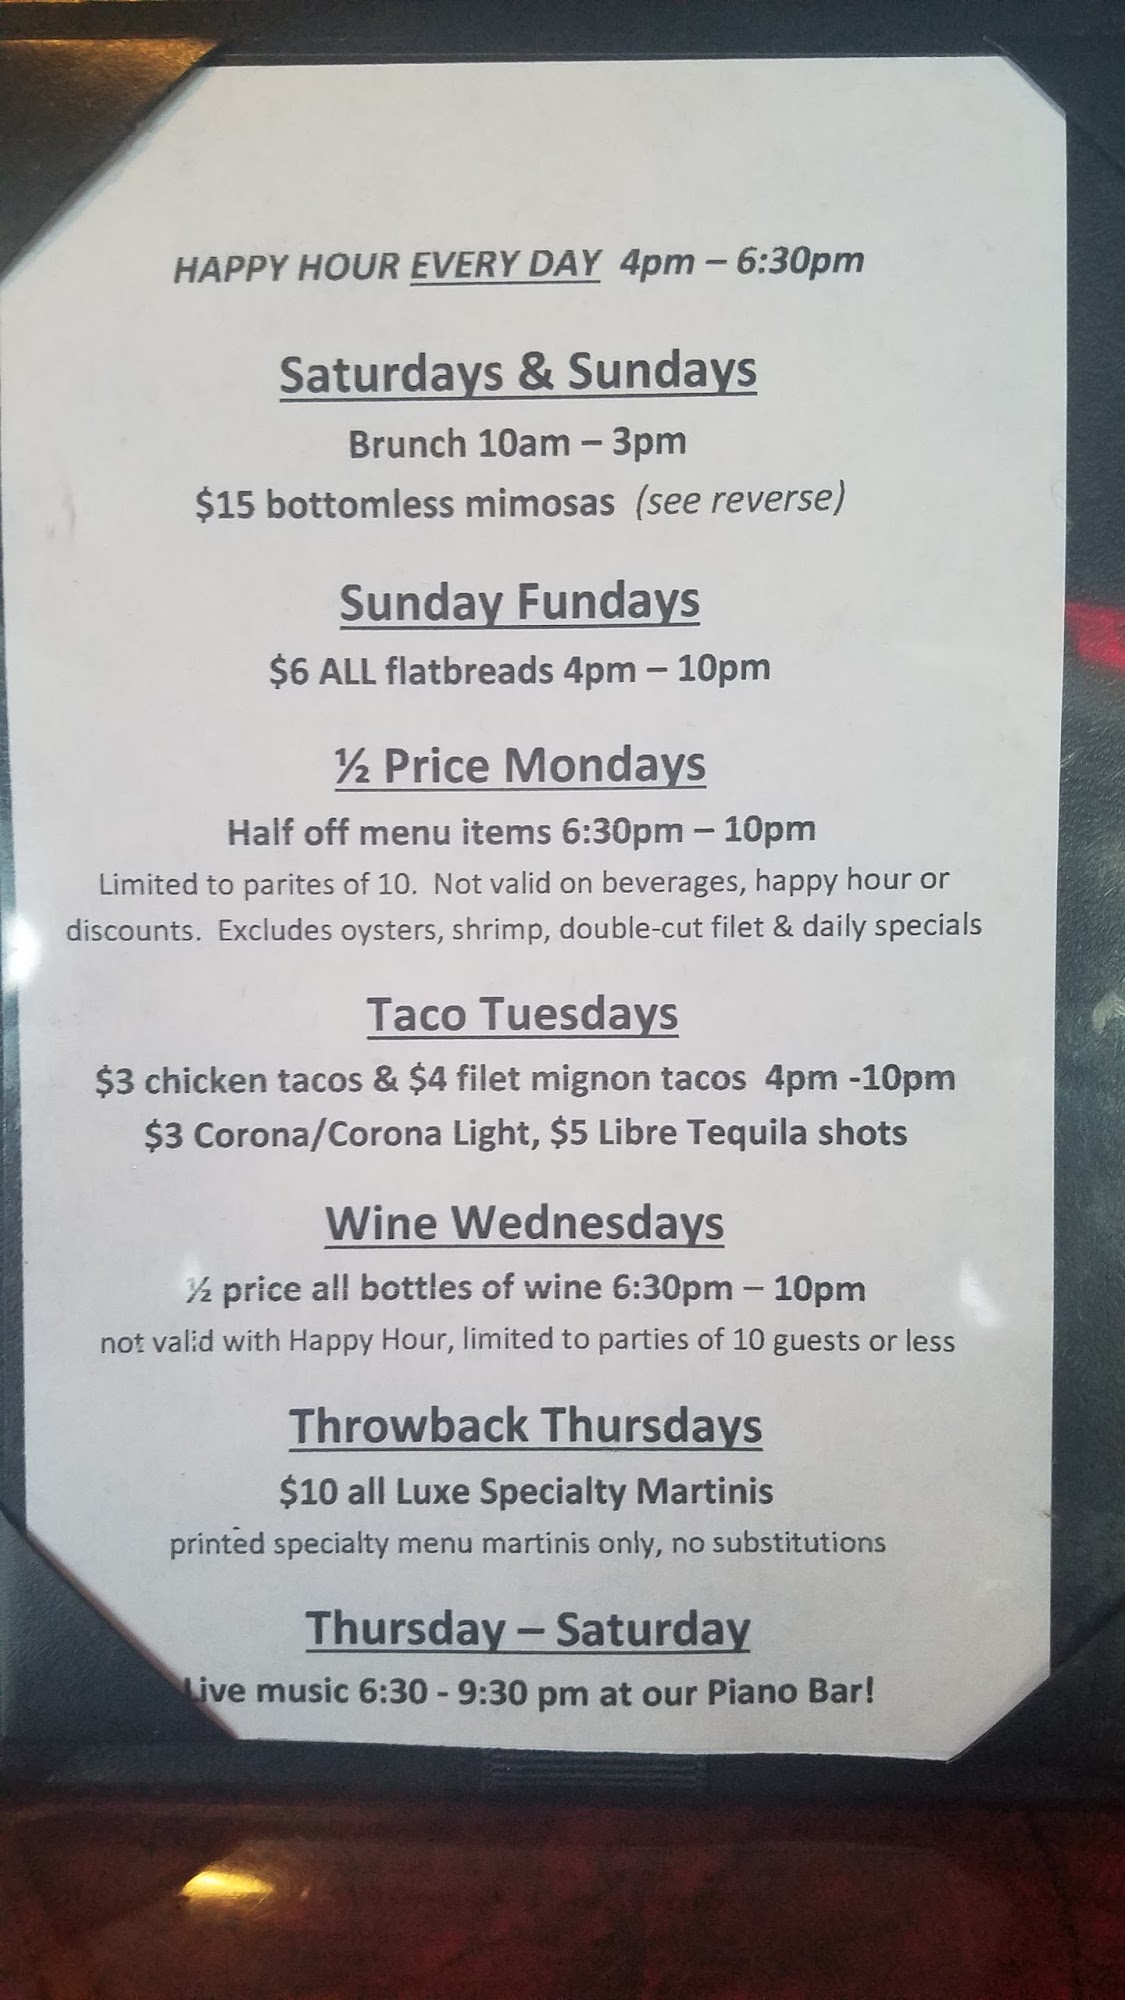 HAPPY HOUR EVERY DAY 4pm – 6:30pm
Saturdays & Sundays
Brunch 10am – 3pm
$15 bottomless mimosas (see reverse)
Sunday Fundays
$6 ALL flatbreads 4pm – 10pm
½ Price Mondays
Half off menu items 6:30pm – 10pm
Limited to parites of 10. Not valid on beverages, happy hour or
discounts. Excludes oysters, shrimp, double-cut filet & daily specials
Taco Tuesdays
$3 chicken tacos & $4 filet mignon tacos 4pm -10pm
$3 Corona/Corona Light, $5 Libre Tequila shots
Wine Wednesdays
½ price all bottles of wine 6:30pm – 10pm
not valid with Happy Hour, limited to parties of 10 guests or less
Throwback Thursdays
$10 all Luxe Specialty Martinis
printed specialty menu martinis only, no substitutions
Thursday – Saturday
Live music 6:30 - 9:30 pm at our Piano Bar!